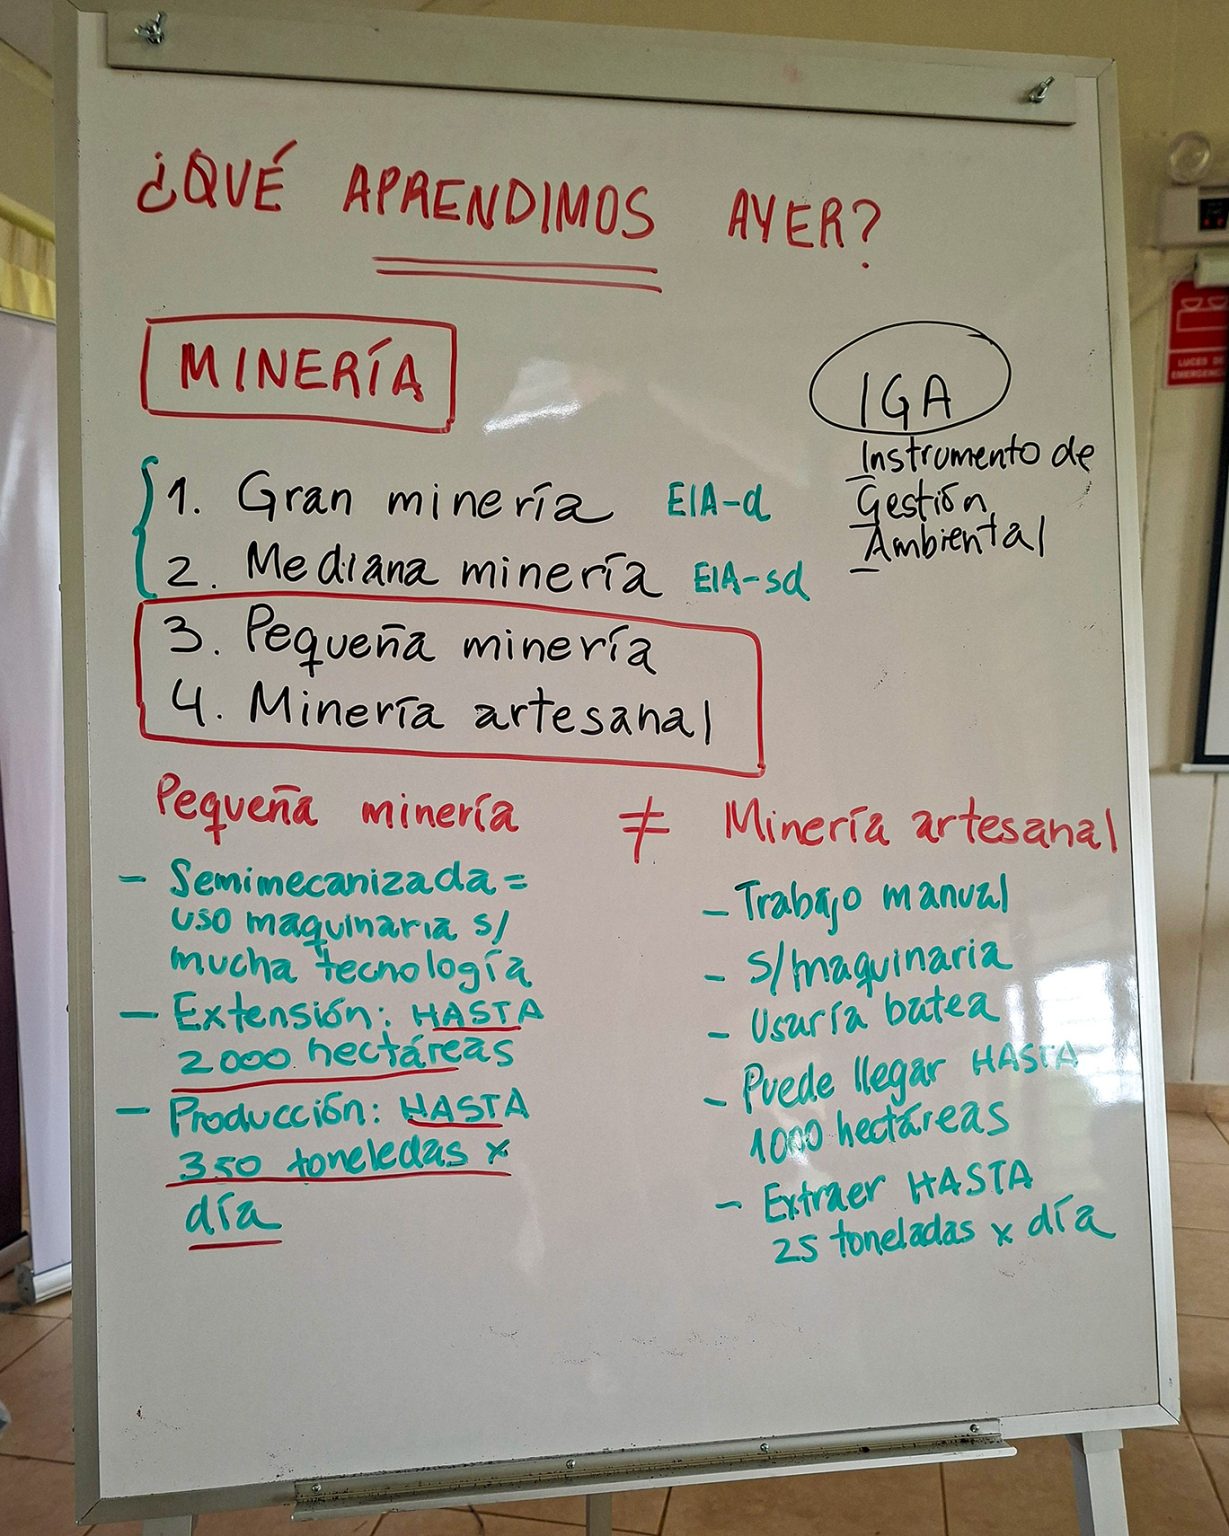 ¿QUÉ APRENDIMOS AYER?
MINERÍA
IGA
Instrumento de
Gestión
Ambiental
1. Gran minería EIA-d
2. Mediana minería EIA-sd
3. Pequeña minería
4. Minería artesanal
Pequeña minería ≠ Minería artesanal
- Semimecanizada =
uso maquinaria s/
mucha tecnología
- Extensión: HASTA
2000 hectáreas
- Producción: HASTA
350 toneledas x
día
- Trabajo manual
- s/maquinaria
- Usaría batea
- Puede llegar HASTA
1000 hectáreas
- Extraer HASTA
25 toneladas x día
LUCES DE
EMERGENCIA